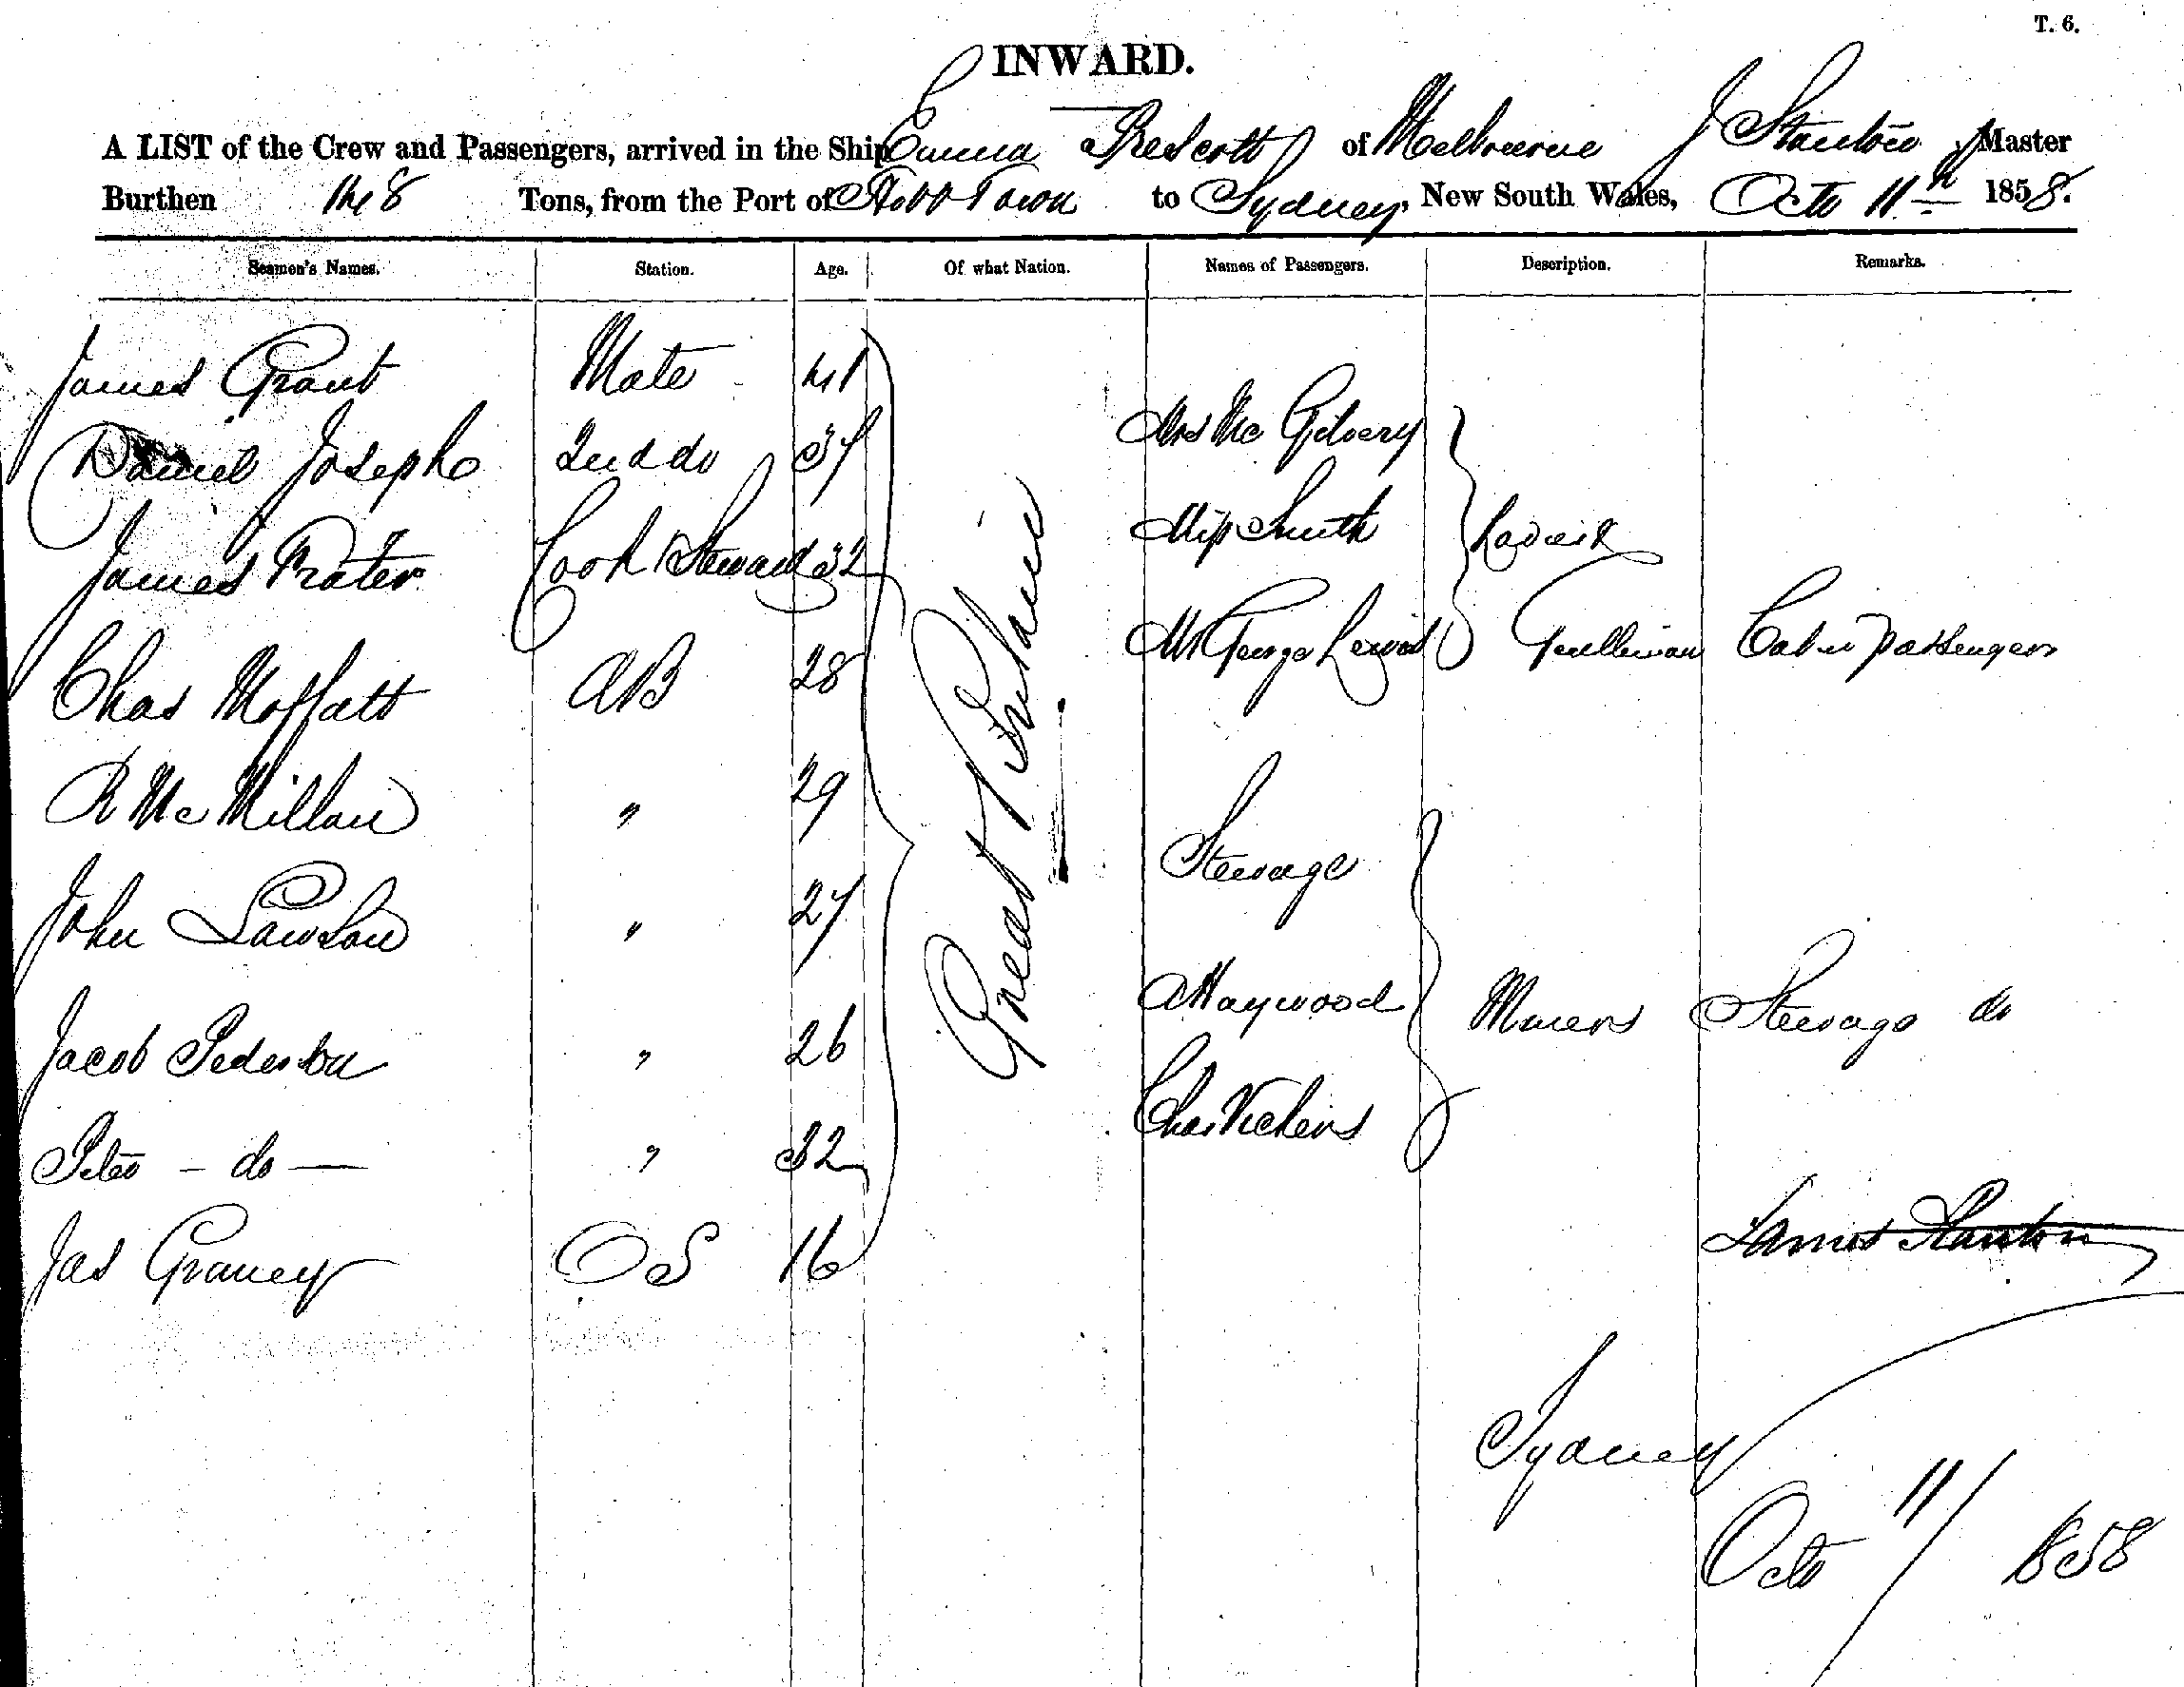 T. 6.
INWARD.
A LIST of the Crew and Passengers, arrived in the Ship Emma Prescott of Melbourne J Stanton Master
Burthen 148 Tons, from the Port of Hobt Town to Sydney, New South Wales, Octo 11th 1858.
Seamen's Names. Station. Age. Of what Nation. Names of Passengers. Description. Remarks.
James Grant Mate 41
Daniel Joseph 2nd do 37 Mrs Mc Gilvery
James Prater Cook Steward 32 Miss Smith Ladies
Chas Moffatt AB 28 Mr George Lewis Gentleman Cabin passengers
Great Britain
R Mc Millan " 29 Steerage
John Lawson " 27
Jacob Pederson " 26 A Haywood Miners Steerage do
Peter - do - " 32 Chas Vickers
Jas Graney OS 16 James Stanton
Sydney
Octo 11/ 1858